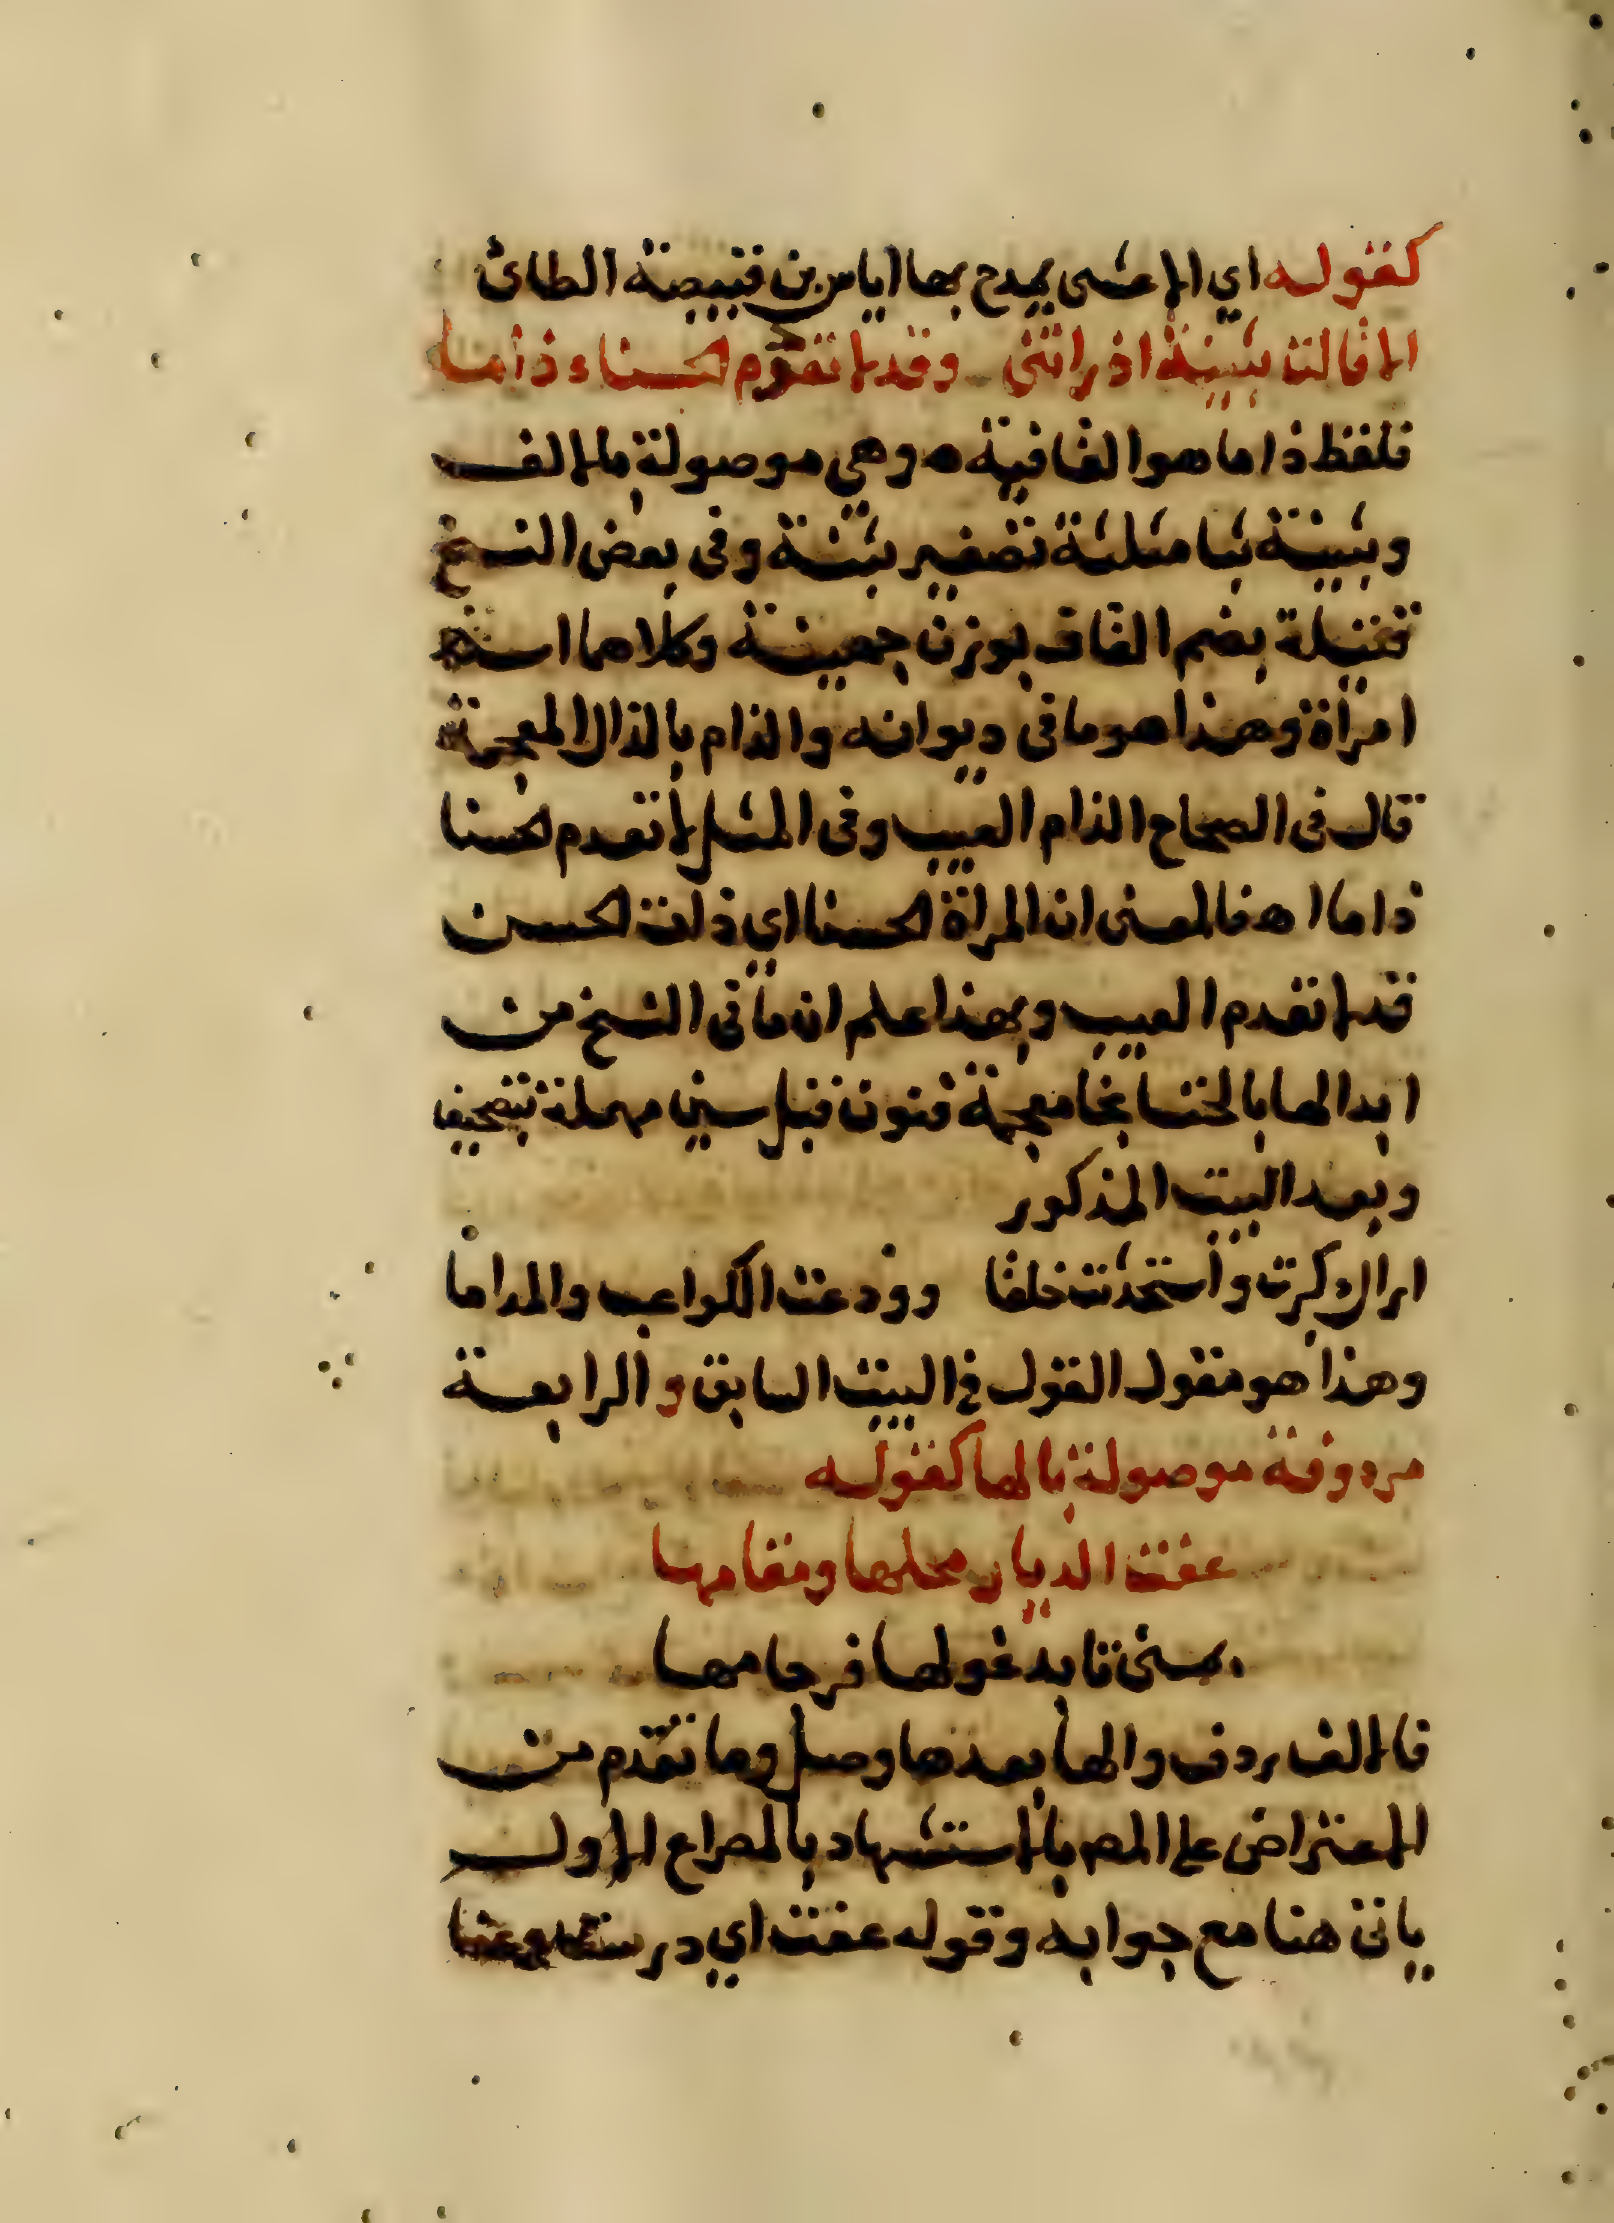 كقوله اي الاعشى يمدح بها اياس بن قبيصة الطائ
الا قالت بثينة اذ راتني وقد لا تقدم لحسناء ذاما
فلفظ ذاما هو القافية وهي موصولة بالالف
وبثينة بثا مثلثة تصغير بثنة وفى بعض النسخ
قتيلة بضم القاف بوزن جهينة وكلاهما اسم
امراة وهذا هو ما فى ديوانه والذام بالذال المعجمة
قال فى الصحاح الذام العيب وفى المثل لا تعدم لحسنا
ذاما اه فالمعنى ان المراة لحسنا اي ذات لحسن
قد لا تعدم العيب وبهذا علم ان ما فى النسخ من
ابدالها بالخنسا بخا معجمة فنون قبل سين مهملة تصحيف
وبعد البيت المذكور
اراك كبرت واستحدثت خلقا وودعت الكواعب والمداما
وهذا هو مقول القول في البيت السابق و الرابعة
مردوفة موصولة بالها كقوله
عفت الديار محلها ومقامها
بمنى تابد غولها فرجامها
فالالف ردف والها بعدها وصل وما تقدم من
الاعتراض على المص بالاستشهاد بالمصراع الاول
ياتى هنا مع جوابه وقوله عفت اي درست